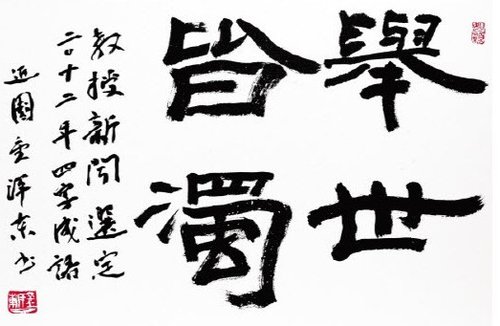 擧世
皆濁
教授新聞選定
二〇十二年四字成語
近園金洋東書